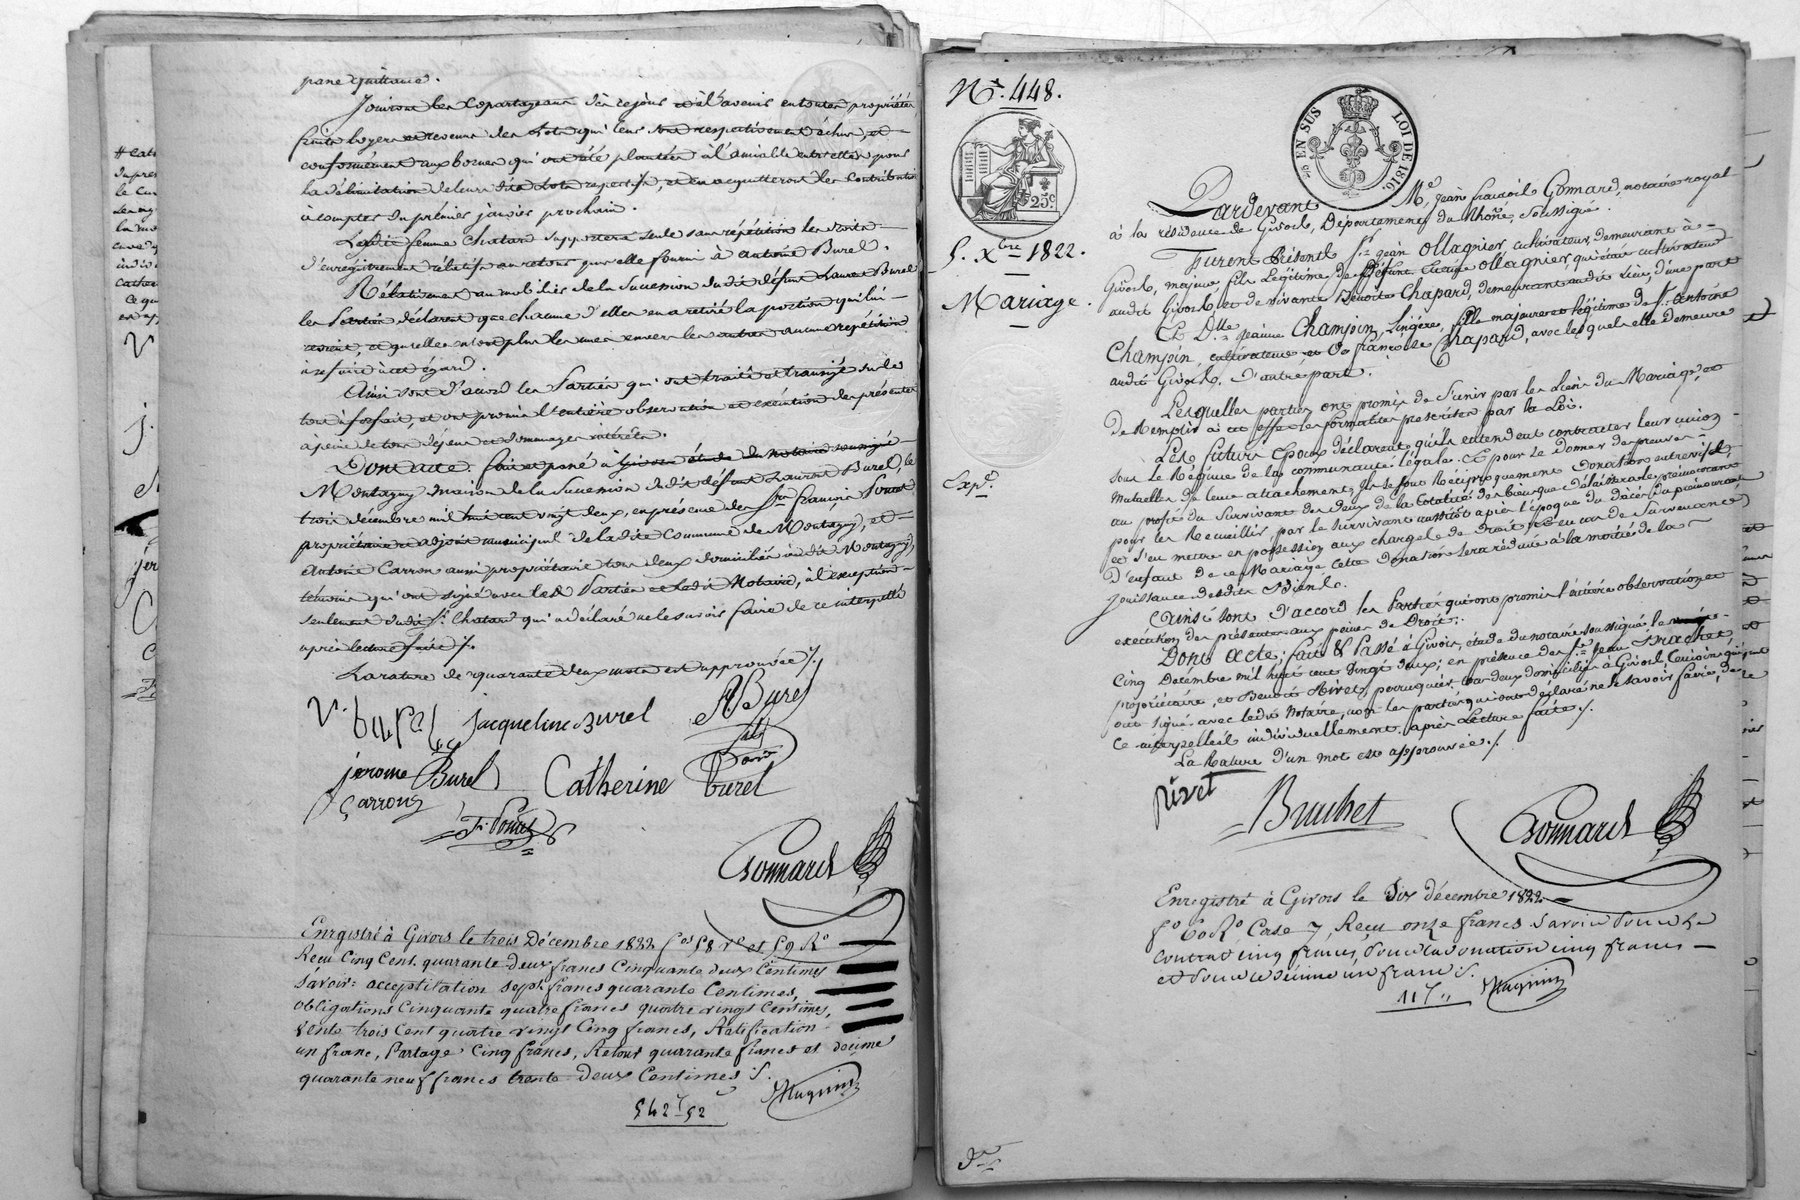 pane quittance.
Jouiront les Copartageans dès ce jour et à l'avenir en toutes propriétés
fruits loyers et revenus des Lots qui leur sont respectivement échus, et
conformément aux bornes qui ont été plantées à l'amiable entre elles pour
la délimitation de leurs dits Lots respectifs, et en acquitteront les Contributions
à compter du prémier janvier prochain.
Ladite femme Chatard supportera seule sans répétition les droits
d'enregistrement rélatifs au retour qu'elle fournit à antoine Burel.
Rélativement au mobilier de la Succession dudit défunt Laurent Burel
les Parties déclarent que chacune d'elles en a retiré la portion qui lui
revient, et qu'elles n'ont plus les unes envers les autres aucune répétition
à se faire à cet égard.
Ainsi sont d'accord les Parties qui ont traité et transigé sur le
tout à forfait, et ont promis l'entière observation et exécution des présentes
à peine de tous dépens et dommages intérêts.
Dont acte. fait et passé à Givors étude du notaire soussigné
Montagny maison de la Succession dudit défunt Laurent Burel, le
trois décembre mil huit cent vingt deux, en présence des Srs françois Pomet
propriétaire et adjoint municipal de la dite Commune de Montagny, et
Antoine Carron aussi propriétaire tous deux domiciliés au dit Montagny
témoins qui ont signé avec les Parties et ledit Notaire, à l'exception
seulement dudit Sr Chatard qui a déclaré ne le savoir faire de ce interpellé
après lecture faite ./.
La rature de quarante deux mots est approuvée ./.
V. burel jacqueline Burel ABurel
jerome Burel Catherine burel
Carron
fs Pomet
Gonnard
Enregistré à Givors le trois Décembre 1822 fos 58 Vo et 59 Ro
Reçu Cinq Cent quarante Deux francs Cinquante deux Centimes
Savoir: acceptilation sept francs quarante Centimes,
obligations Cinquante quatre francs quatre vingt Centimes,
Vente trois Cent quatre vingt Cinq francs, Ratification
un franc, Partage Cinq francs, Retour quarante francs et decime
quarante neuf francs trente Deux Centimes ./.
542f 52c
Nº. 448.
EN SUS LOI DE 1816.
25c
5. Xbre 1822.
Mariage.
Expé.
Pardevant Me. jean françois Gonnard, notaire royal
à la résidence de Givors, Département du Rhône, Soussigné.
Furent Présents Sr. jean Ollagnier, cultivateur, demeurant à
Givors, majeur fils Légitime de défunt Ollagnier, qui était cultivateur
audit Givors et de vivante Benoite Chapard, demeurant audit Lieu, d'une part
Et Dlle. jeanne Champin, Lingère, fille majeure et légitime de Sr. Antoine
Champin, cultivateur et De françoise Chapard, avec lesquels elle demeure
audit Givors. d'autre part.
Lesquelles parties ont promis de S'unir par les Liens du Mariage, et
de Remplir à cet effet les formalités prescrites par la Loi.
Les futurs Epoux déclarent qu'ils entendent contracter leur union
sous le Régime de la communauté légale. Et pour se donner des preuves
mutuelles de leur attachement, ils se font Réciproquement Donation entrevifs,
au profit du Survivant des deux de la totalité des biens que délaissera le prémourant
pour les Recueillir, par le Survivant aussitôt après l'époque du décès du prémourant
et s'en mettre en possession aux charges de droit. Et en cas de Survenance
d'enfant de ce Mariage cette donation sera réduite à la moitié de la
jouissance desdits Biens.
Ainsi sont d'accord les Parties qui ont promis l'entière observation et
exécution des présentes aux peines de Droit.
Dont Acte; fait & Passé à Givors, étude du notaire soussigné le
Cinq Décembre mil huit cent vingt deux; en présence des Srs. Jean Bruchet,
propriétaire, et Benoit Rivet, perruquier, tous deux domiciliés à Givors, Témoins qui
ont signé avec ledit Notaire, non les parties qui ont déclaré ne le savoir faire, de
ce interpellés individuellement après Lecture faite ./.
La Rature d'un mot est approuvée ./.
rivet Bruchet Gonnard
Enregistré à Givors le Dix décembre 1822
fo 60 Ro Case 7, Reçu onze francs Savoir pour le
contrat cinq francs, pour la donation cinq francs
et pour le décime un franc ./.
11f „